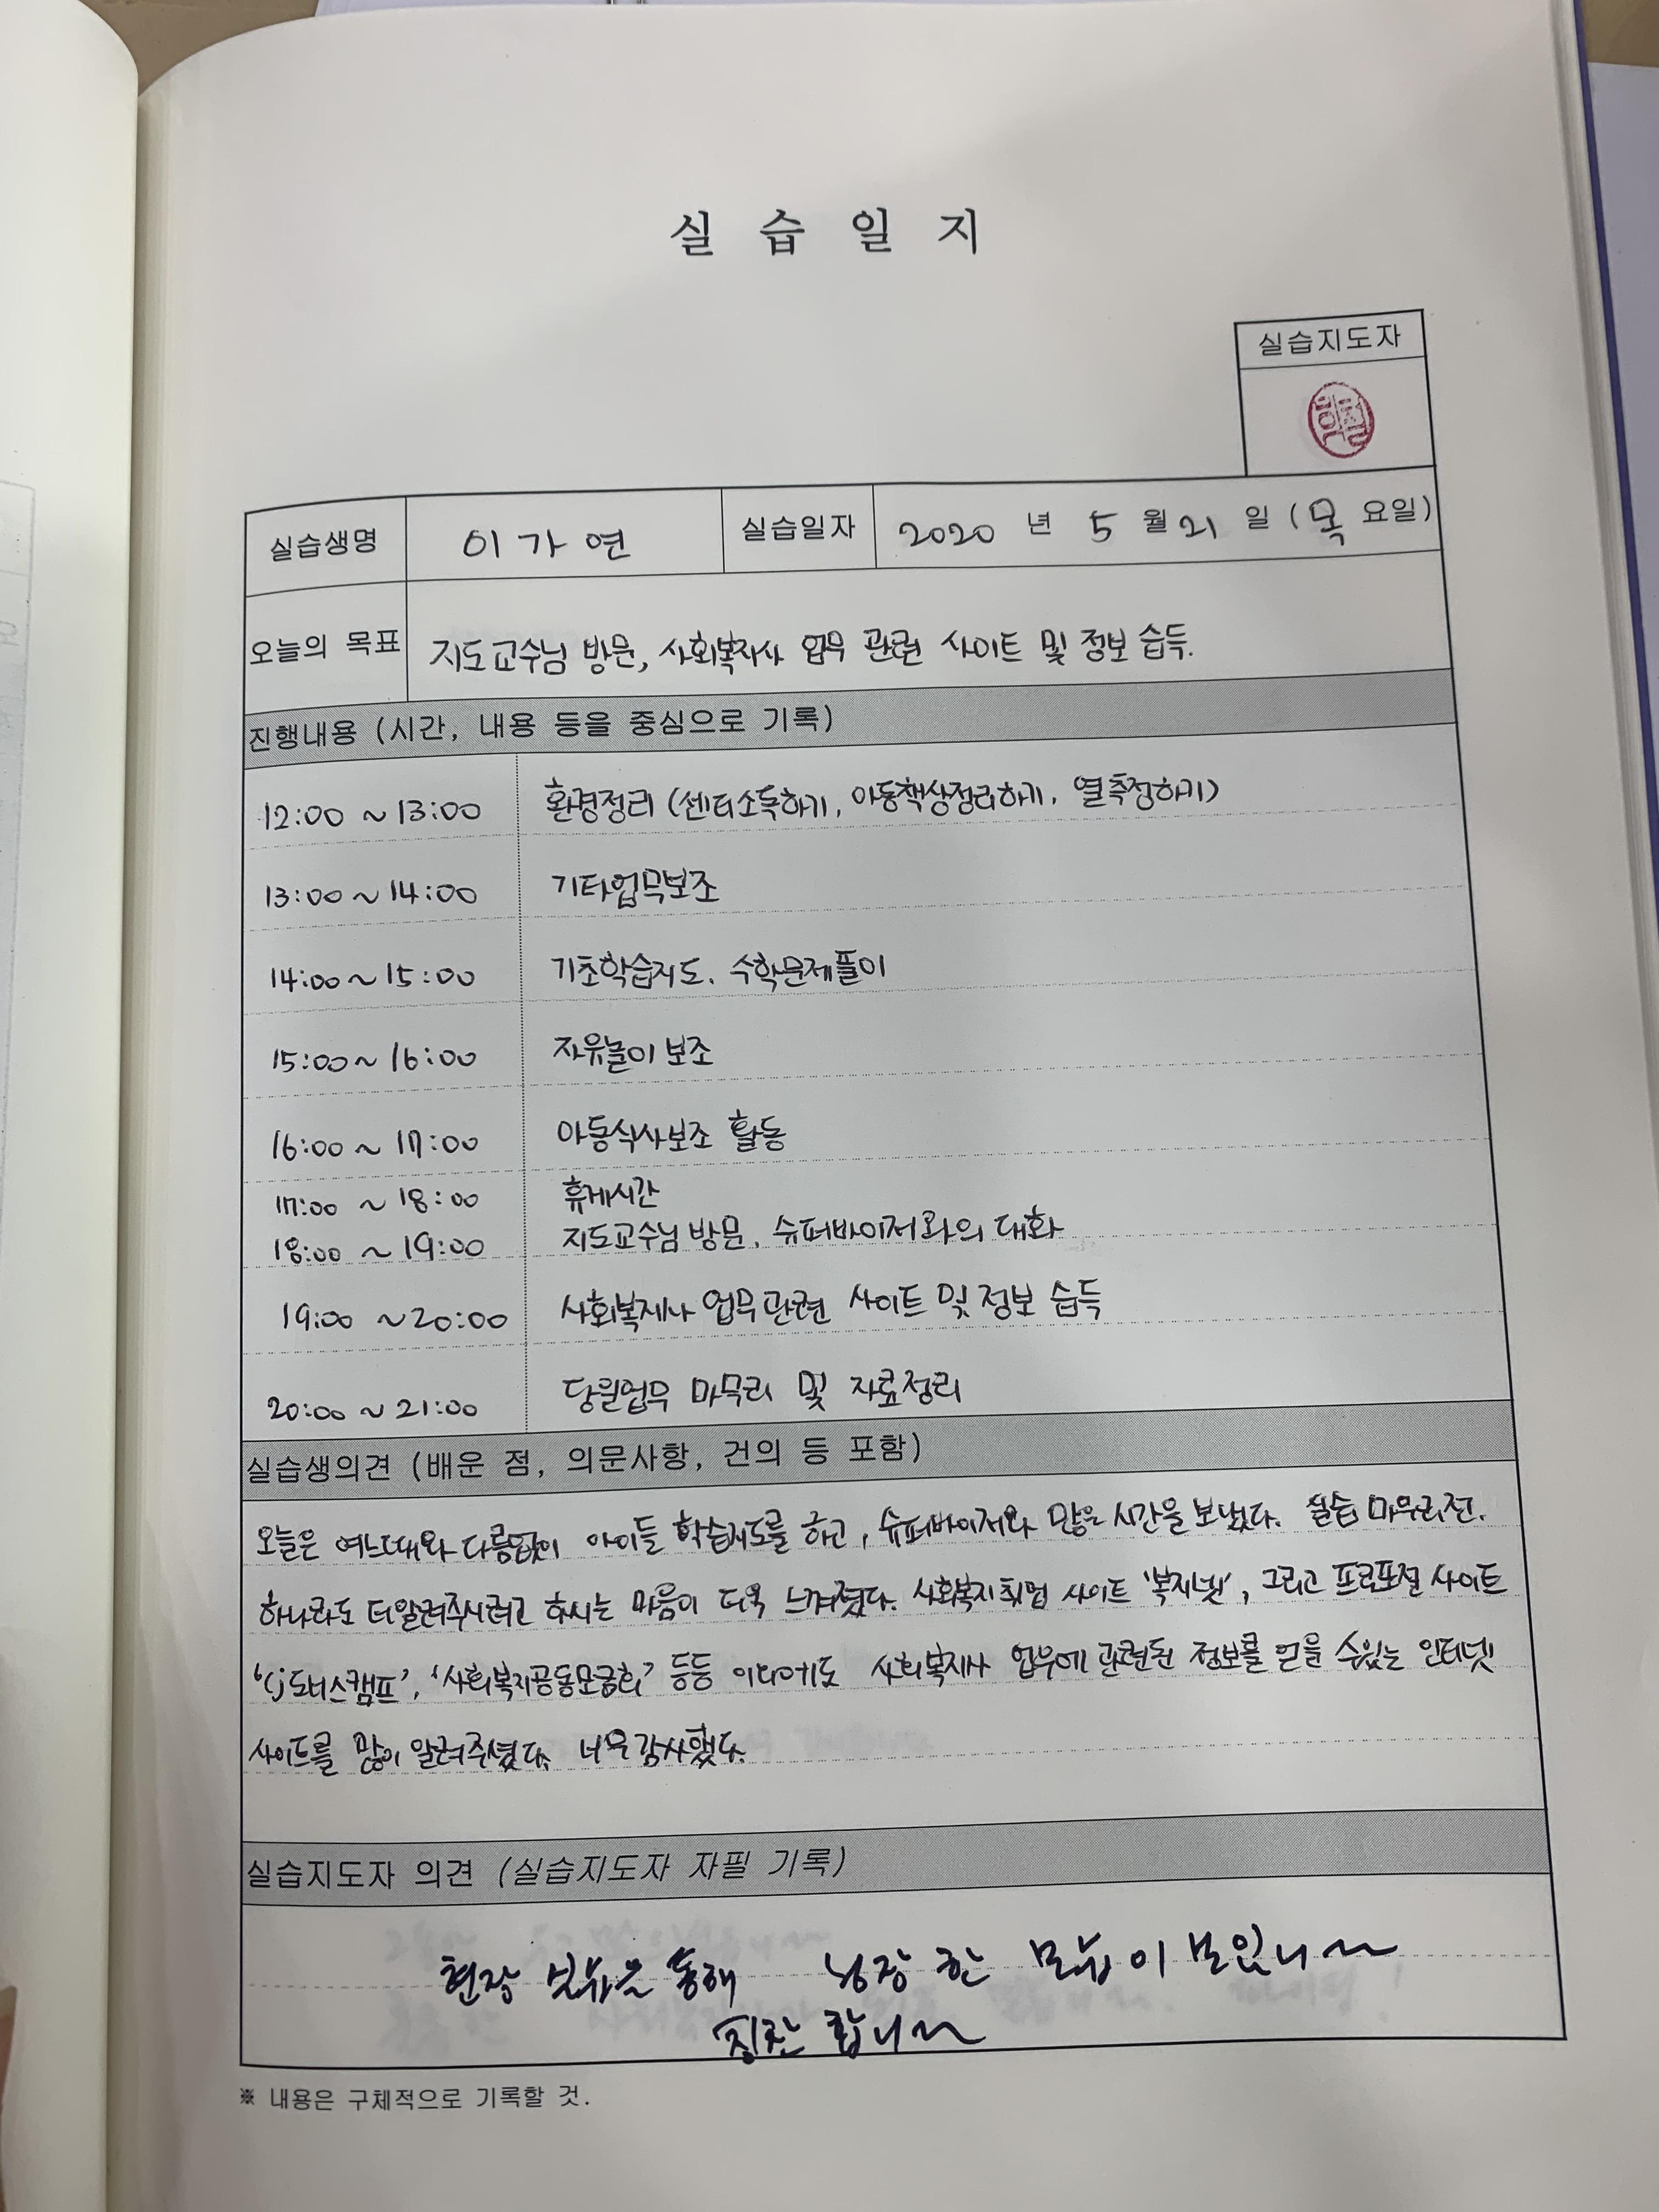 실 습 일 지
실습지도자
실습생명 이가연 실습일자 2020 년 5 월 21 일 (목 요일)
오늘의 목표 지도교수님 방문, 사회복지사 업무 관련 사이트 및 정보 습득.
진행내용 (시간, 내용 등을 중심으로 기록)
12:00 ~ 13:00 환경정리 (센터소독하기, 아동책상정리하기, 열측정하기)
13:00 ~ 14:00 기타업무보조
14:00 ~ 15:00 기초학습지도, 수학문제풀이
15:00 ~ 16:00 자유놀이 보조
16:00 ~ 17:00 아동식사보조 활동
17:00 ~ 18:00 휴게시간
18:00 ~ 19:00 지도교수님 방문, 슈퍼바이저와의 대화
19:00 ~ 20:00 사회복지사 업무관련 사이트 및 정보 습득
20:00 ~ 21:00 당일업무 마무리 및 자료정리
실습생의견 (배운 점, 의문사항, 건의 등 포함)
오늘은 여느때와 다름없이 아이들 학습지도를 하고, 슈퍼바이저와 많은 시간을 보냈다. 실습 마무리전,
하나라도 더알려주시려고 하시는 마음이 더욱 느껴졌다. 사회복지취업 사이트 '복지넷', 그리고 프로포절 사이트
'cj도너스캠프', '사회복지공동모금회' 등등 이외에도 사회복지사 업무에 관련된 정보를 얻을 수있는 인터넷
사이트를 많이 알려주셨다. 너무감사했다.
실습지도자 의견 (실습지도자 자필 기록)
현장 통해 한 모습이 보입니~~
칭찬 합니~~
※ 내용은 구체적으로 기록할 것.